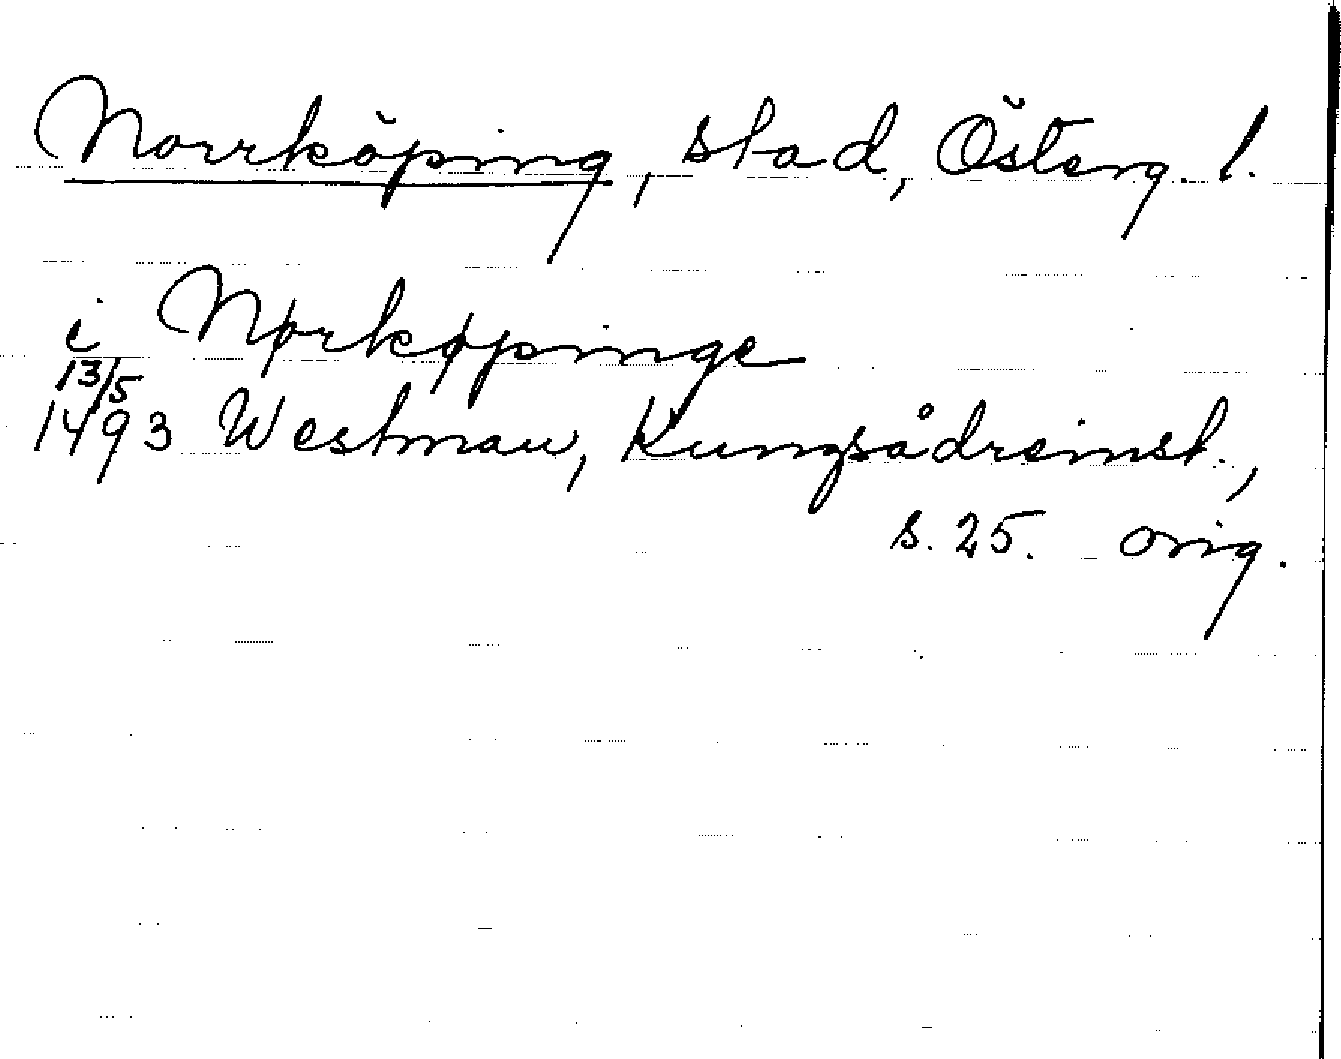 Norrköping, stad, Österg. l.
i Nørkøpinge
13/5
1493 Westman, Kungsådreinst.,
s. 25. orig.